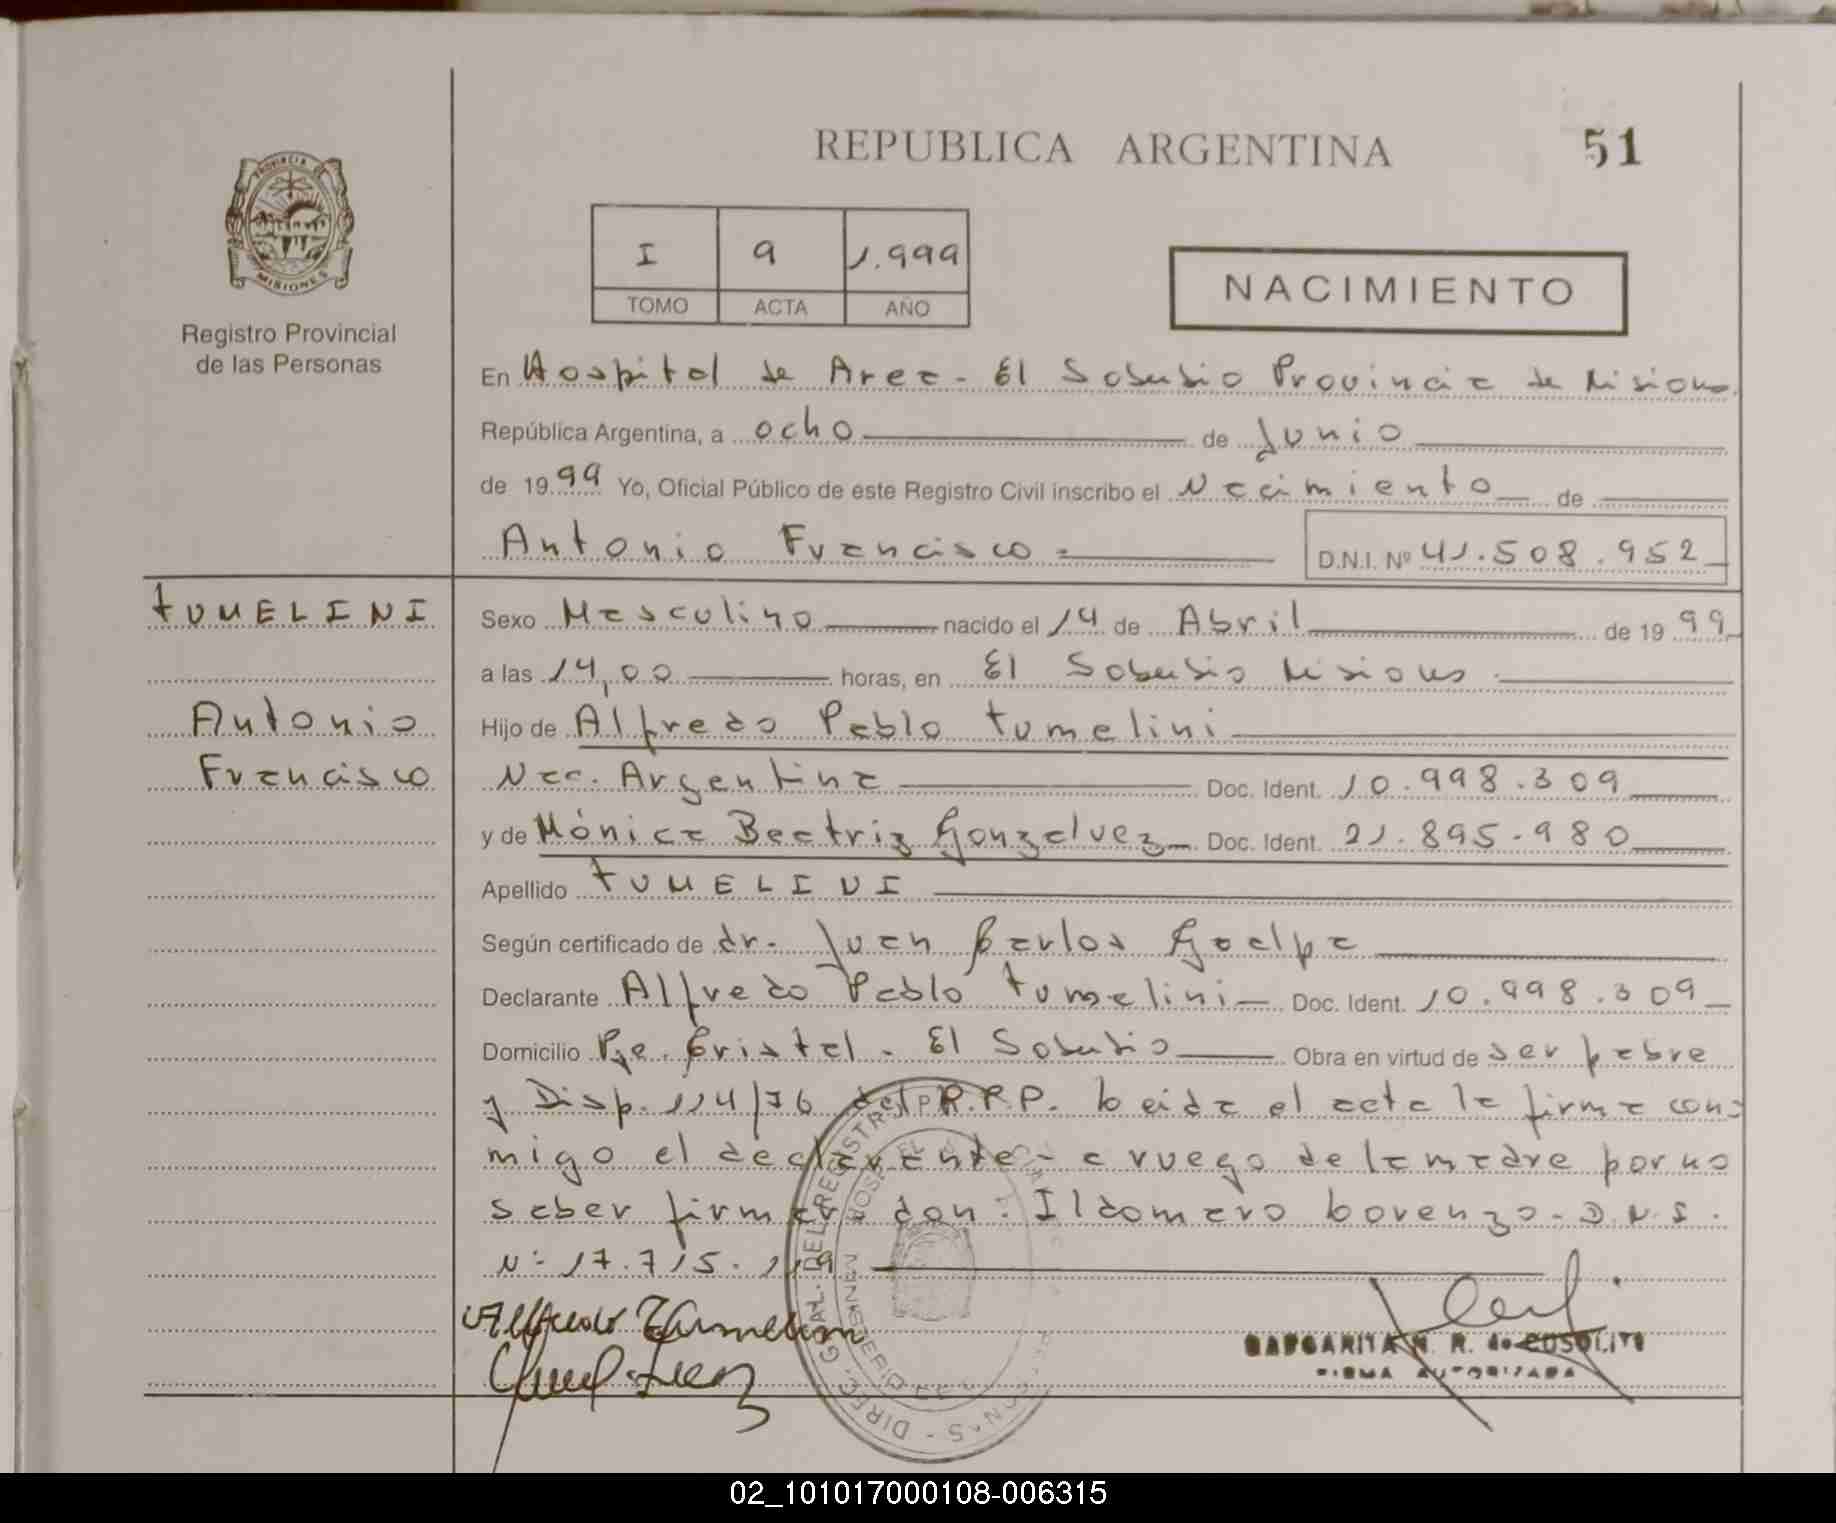 REPUBLICA ARGENTINA
51
PROVINCIA DE
MISIONES
Registro Provincial
de las Personas
I 9 1.999
TOMO ACTA AÑO
NACIMIENTO
En Hospital de Area - El Soberbio Provincia de Misiones
República Argentina, a ocho de Junio
de 1999 Yo, Oficial Público de este Registro Civil inscribo el Nacimiento de
Antonio Francisco =
D.N.I. Nº 41.508.952
TUMELINI
Antonio
Francisco
Sexo Masculino nacido el 14 de Abril de 1999
a las 14,00 horas, en El Soberbio Misiones
Hijo de Alfredo Pablo Tumelini
Nac. Argentina Doc. Ident. 10.998.309
y de Mónica Beatriz Gonzalvez Doc. Ident. 21.895.980
Apellido TUMELINI
Según certificado de dr. Juan Carlos Goalpa
Declarante Alfredo Pablo Tumelini Doc. Ident. 10.998.309
Domicilio Pje. Cristal - El Soberbio Obra en virtud de ser padre
y Disp. 114/76 del R.P.P. Leida el acta la firma con-
migo el declarante - a ruego de la madre por no
saber firmar don: Ildomaro Lorenzo - D.N.I.
N: 17.715.119
MARGARITA N. R. de CUSOLITO
FIRMA AUTORIZADA
DIREC. GRAL. DEL REGISTRO
02_101017000108-006315